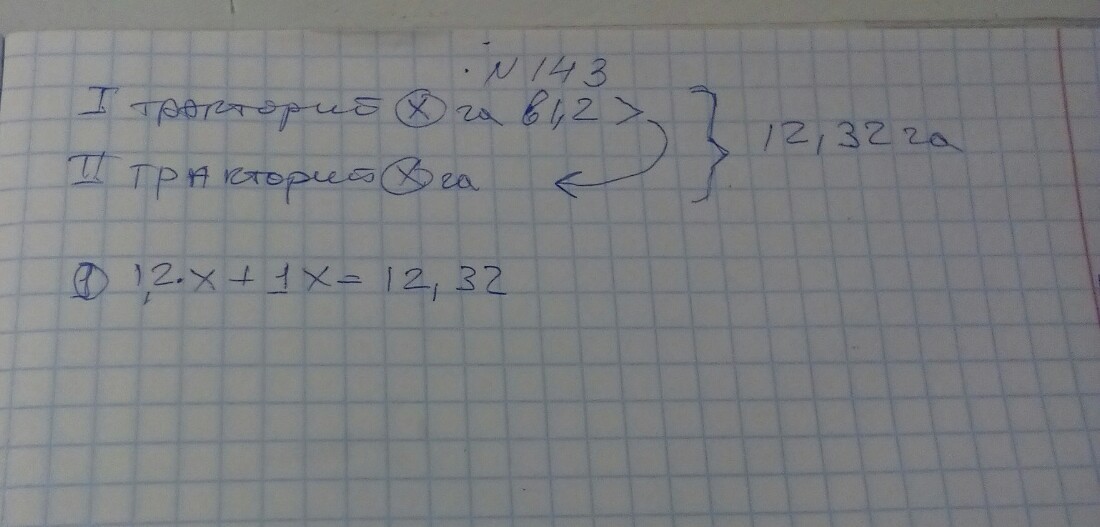 № 143
I тракторист x га в 1,2 >
II тракторист x га
} 12,32 га
① 1,2·x + 1x = 12,32